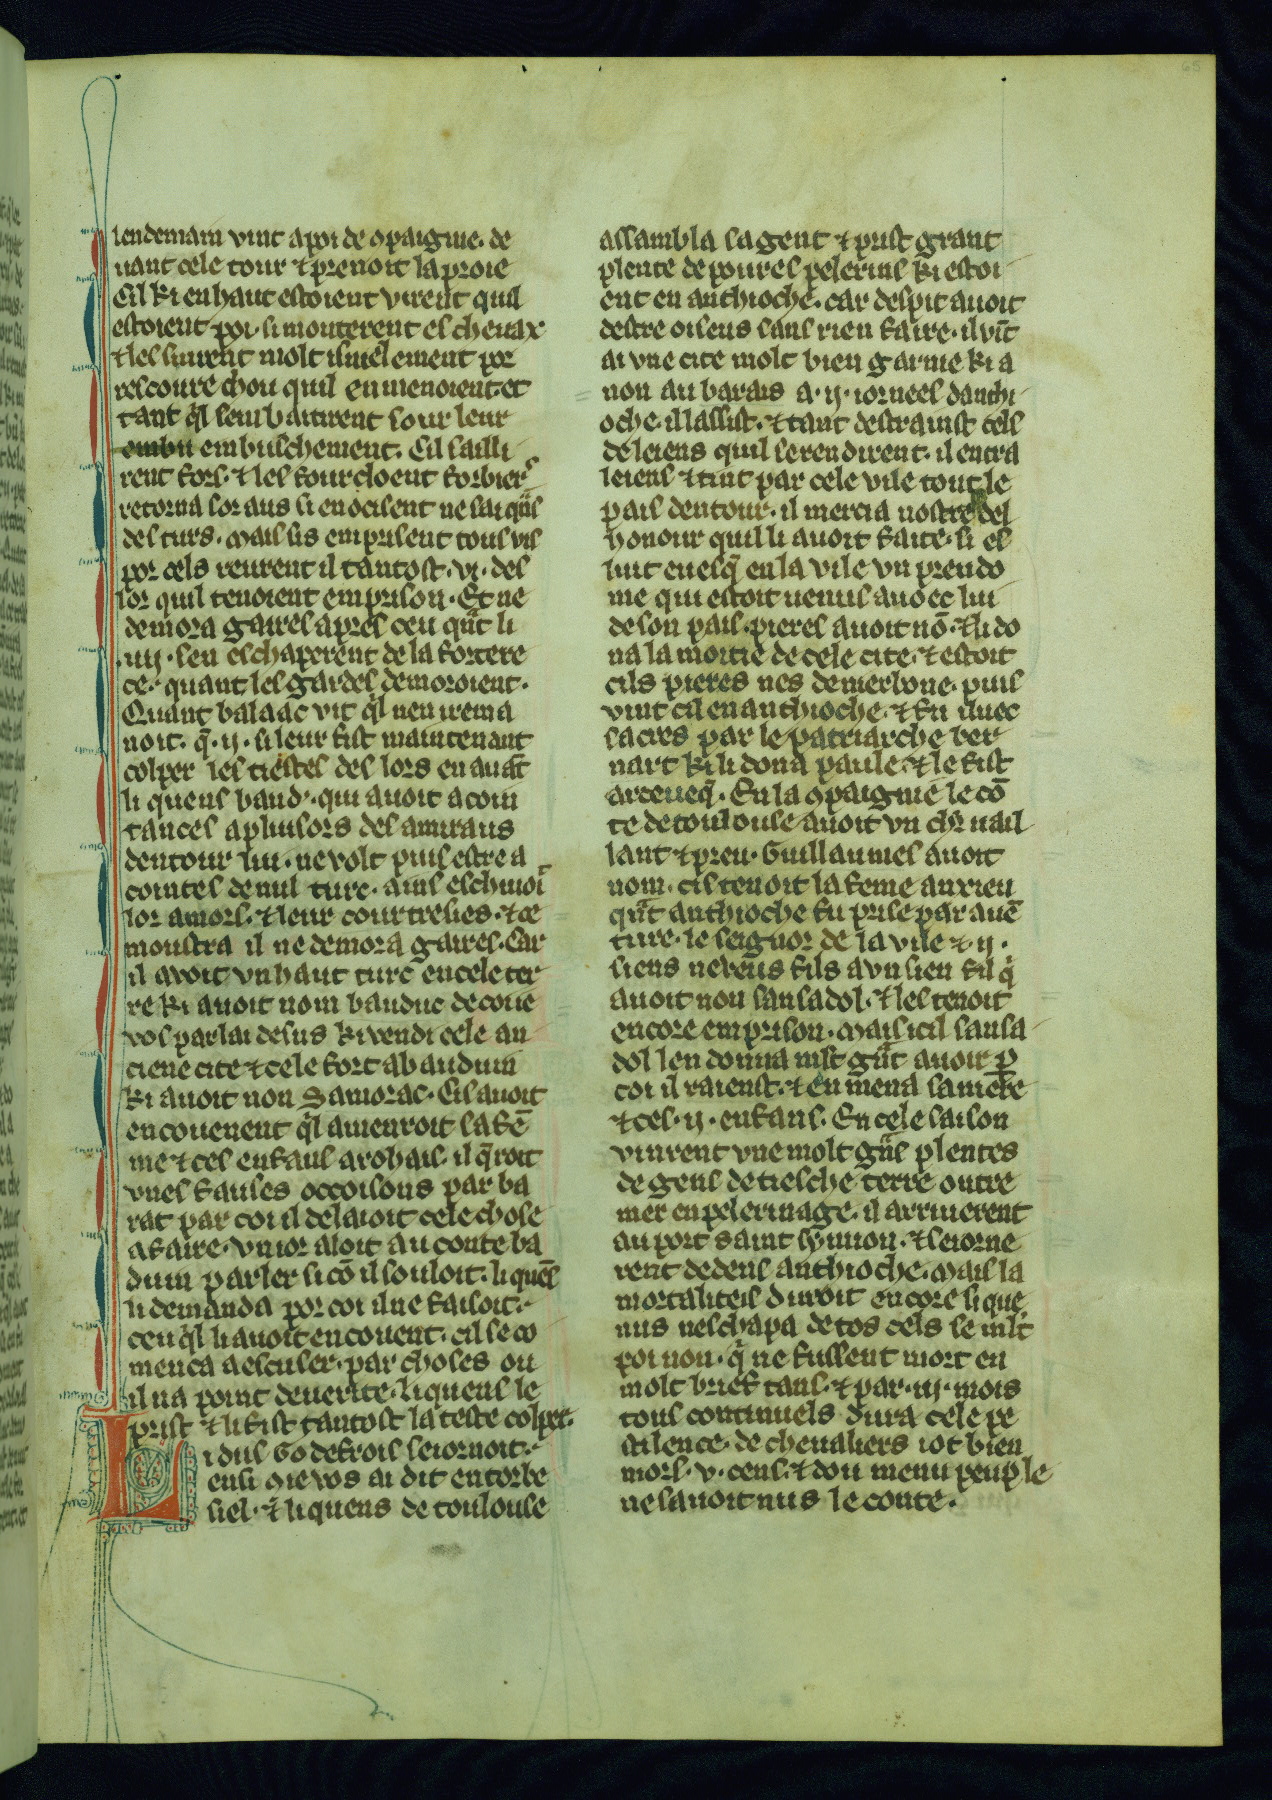 lendemain vint a poi de ɔpaignie. de
uant cele tour ⁊ prenoit la proie
Cil ki en haut estoient virent quil
estoient poi. si monterent es cheuax
⁊ les siuirent molt isnielement por
rescoure chou quil en menoient. et
tant ql senbatirent sour leur
embu embuschement. Cil sailli
rent fors. ⁊ les fourcloent forbier
retorna sor aus si en ocisent ne sai qns
des turs. Mais sis emprisent tous vis
por cels reurent il tantost. vi. des
lor quil tenoient em prison. Et ne
demora gaires apres ceu qnt li
.iiij. sen eschaperent de la fortere
ce. quant les gardes demoroient.
Quant balaac vit ql nen i rema
noit. q̄ .ij. si leur fist maintenant
colper les tiestes des lors en auāt
li quens baud'. qui auoit acoin
tances a pluisors des amiraus
dentour lui. ne volt puis estre a
cointes de nul turc. ains eschiuoi
lor amors. ⁊ leur courtresies. ⁊ ce
moustra il ne demora gaires. Car
il avoit vn haut turc en cele ter
re ki auoit nom bauduc de coue
vos parlai desus ki vendi cele an
ciene cite ⁊ cele fort a bauduin
ki auoit non Samorac. Cil auoit
en couenent ql amenroit sa fē
me ⁊ ces enfans a rohais. il q̄roit
vnes fauses occoisons par ba
rat par coi il delaioit cele chose
a faire. vn ior aloit au conte ba
duin parler si cō il souloit. li quēs
li demanda por coi il ne faisoit.
ceu ql li auoit en couent. cil se co
menca a escuser. par choses ou
il na point de uerite. li quens le
prist ⁊ li fist tantost la teste colper.
Li dus Godefrois seiornoit.
ensi ɔie vos ai dit en torbe
siel. ⁊ li quens de toulouse
assambla sa gent ⁊ prist grant
plente de poures pelerins ki estoi
ent en anthioche. car despit auoit
destre oiseus sans rien faire. il vīt
ai vne cite molt bien garnie ki a
non au barais a .ij. iornees danthi
oche. il lassist. ⁊ tant destrainst cels
de leiens quil se rendirent. il entra
leiens ⁊ tint par cele vile tout le
pais dentour. il mercia nostre del
honour quil li auoit faite. si es
liut euesq̄ en la vile vn preudo
me qui estoit uenus auoec lui
de son pais. pieres auoit nō. ⁊ li do
na la moitie de cele cite. ⁊ estoit
cils pieres nes de nerbone. puis
vint cil en anthioche. ⁊ fu iluec
sacres par le patriarche ber
nart ki li dona paule. ⁊ le fist
arceueq̄. En la ɔpaignie le cō
te de toulouse auoit vn chr uail
lant ⁊ preu. Guillaumes auoit
nom. cis tenoit la feme anxien
qnt anthioche fu prise par auē
ture. le seignor de la vile ⁊ ij.
siens neueus fils a vn sien fil q
auoit non sansadol. ⁊ les tenoit
encore em prison. Mais icil sansa
dol len donna mlt gnt auoir p
coi il raienst. ⁊ en mena sa mere
⁊ ces .ij. enfans. En cele saison
vinrent vne molt gns plentes
de gens de tiesche terre outre
mer en pelerinage. il arriuerent
au port saint symion. ⁊ seiorne
rent dedens anthioche. Mais la
mortaliteis duroit encore si que
nus neschapa de tos cels se mlt
poi non. q ne fussent mort en
molt brief tans. ⁊ par .iij. mois
tous continuels dura cele pe
stilence. de cheualiers iot bien
mors .v. cens. ⁊ dou menu peuple
ne sauoit nus le conte.